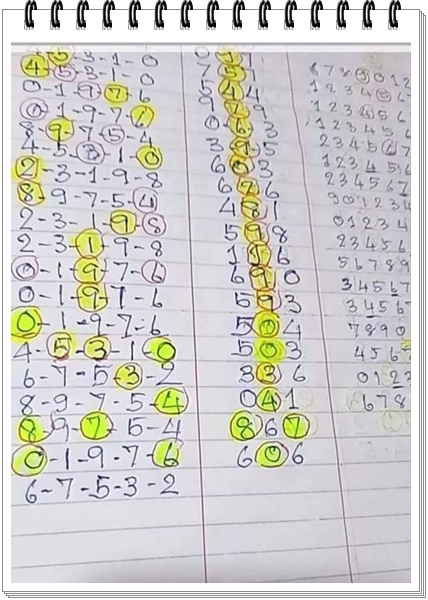 4-5-3-1-0
0-1-9-7-6
0-1-9-7-
8-9-7-5-4
4-5-3-1-0
2-3-1-9-8
8-9-7-5-4
2-3-1-9-8
2-3-1-9-8
0-1-9-7-6
0-1-9-7-6
0-1-9-7-6
4-5-3-1-0
6-7-5-3-2
8-9-7-5-4
8-9-7-5-4
0-1-9-7-6
6-7-5-3-2
544
063
395
676
481
598
116
690
593
504
503
336
041
867
606
123456
123456
123456
234567
123456
234567
901234
01234
23456
56789
34567
34567
7890
456
0122
678